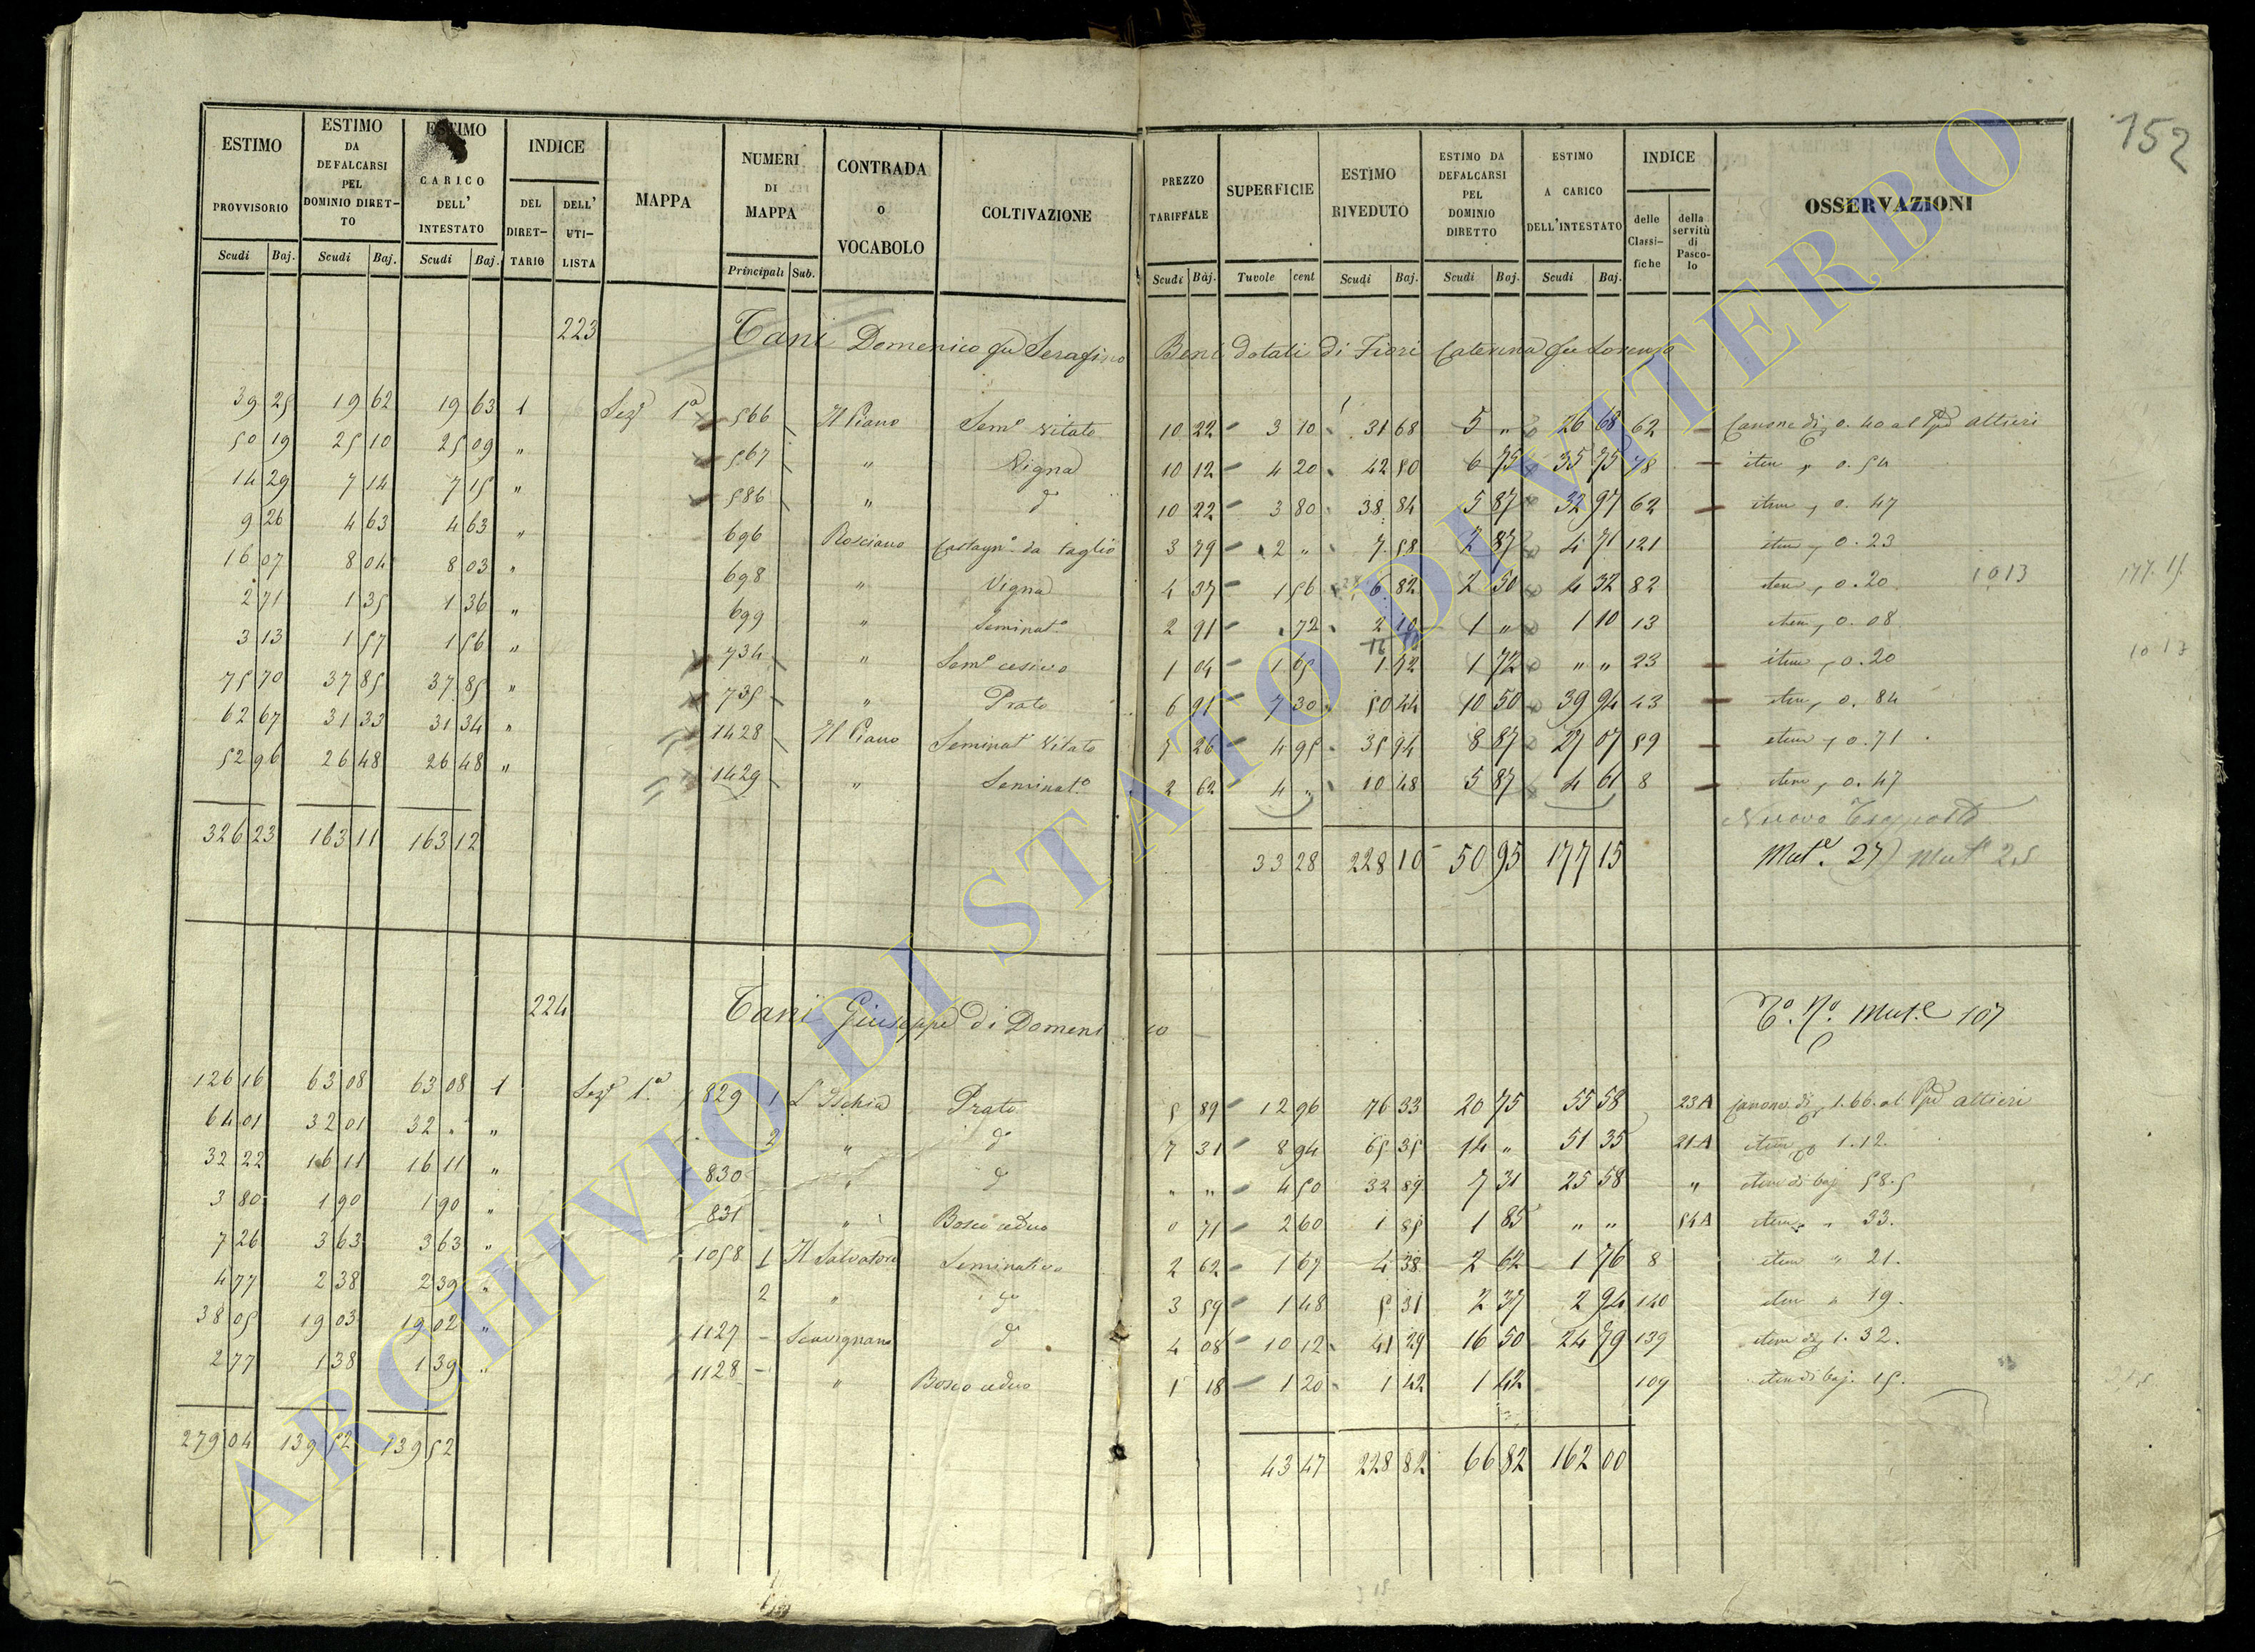 152
ESTIMO PROVVISORIO Scudi Baj.
ESTIMO DA DEFALCARSI PEL DOMINIO DIRETTO Scudi Baj.
ESTIMO CARICO DELL' INTESTATO Scudi Baj.
INDICE DEL DIRETTARIO DELL' UTILISTA
MAPPA
NUMERI DI MAPPA Principali Sub.
CONTRADA o VOCABOLO
COLTIVAZIONE
PREZZO TARIFFALE Scudi Baj.
SUPERFICIE Tavole cent
ESTIMO RIVEDUTO Scudi Baj.
ESTIMO DA DEFALCARSI PEL DOMINIO DIRETTO Scudi Baj.
ESTIMO A CARICO DELL'INTESTATO Scudi Baj.
INDICE delle Classifiche della servitù di Pascolo
OSSERVAZIONI
223 Tani Domenico fu Serafino Beni dotali di Fiori Caterina fu Lorenzo
39 25 19 62 19 63 1 Sez.e 1a 566 Il Piano Sem.o vitato 10 22 3 10 31 68 5 " 26 68 62 Canone di 0.40 al Altieri
50 19 25 10 25 09 " 567 " Vigna 10 12 4 20 42 50 6 75 35 75 78 item " 0.54
14 29 7 14 7 15 " 586 " d 10 22 3 80 38 84 5 87 32 97 62 item " 0.47
9 26 4 63 4 63 " 696 Rosciano Castagn.o da taglio 3 79 2 " 7 58 2 87 4 71 121 item " 0.23
16 07 8 04 8 03 " 698 " Vigna 4 37 1 56 6 82 2 50 4 32 82 item " 0.20 1013 177.15
2 71 1 35 1 36 " 699 " Seminat.o 2 91 72 2 10 1 " 1 10 13 item " 0.08
3 13 1 57 1 56 " 734 " Sem.o cesivo 1 04 1 65 1 72 1 72 " " 23 item " 0.20 10 13
75 70 37 85 37 85 " 735 " Prato 6 91 7 30 50 44 10 50 39 94 43 item " 0.84
62 67 31 33 31 34 " 1428 Il Piano Seminat.o Vitato 7 26 4 95 35 94 8 87 27 07 59 item " 0.71
52 96 26 48 26 48 " 1429 " Seminat.o 2 62 4 " 10 48 5 87 4 61 8 item " 0.47
Nuovo Trasporto
326 23 163 11 163 12 33 28 228 10 50 95 177 15 Mut.e 27 Mut.e 25
224 Tani Giuseppe di Domenico T.o N.o Mut.e 107
126 16 63 08 63 08 1 Sez.e 1a 829 1 L'Ischia Prato 5 89 12 96 76 33 20 75 55 58 23A Canone di 1.66 al Altieri
64 01 32 01 32 " " 2 " d 7 31 8 94 65 35 14 " 51 35 21A item 1.12
32 22 16 11 16 11 " 830 " d " " 4 50 32 89 7 31 25 58 " item di baj 58.5
3 80 1 90 1 90 " 831 " Bosco ceduo 0 71 2 60 1 85 1 85 " " 54A item " 33.
7 26 3 63 3 63 " 1058 1 Il Salvatore Seminativo 2 62 1 67 4 38 2 62 1 76 8 item " 21.
4 77 2 38 2 39 " 2 " d 3 59 1 48 5 31 2 37 2 94 140 item " 19.
38 05 19 03 19 02 " 1127 Scovignano d 4 08 10 12 41 29 16 50 24 79 139 item di 1.32.
2 77 1 38 1 39 " 1128 " Bosco ceduo 1 18 1 20 1 42 1 42 109 item di baj. 15.
279 04 139 52 139 52 43 47 228 82 66 82 162 00
ARCHIVIO DI STATO DI VITERBO